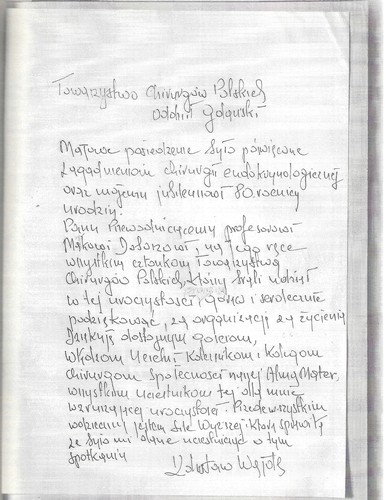 Towarzystwo Chirurgów Polskich
Oddział Gdański
Majowe posiedzenie było poświęcone
zagadnieniom chirurgii endokrynologicznej
oraz mojemu jubileuszowi 80. rocznicy
urodzin.
Panu Przewodniczącemu profesorowi
Maciejowi, na Jego ręce
wszystkim członkom Towarzystwa
Chirurgów Polskich, którzy brali udział
w tej uroczystości, gorąco i serdecznie
podziękować, za organizację za życzenia
Dziękuję dostojnym gościom,
Władzom Uczelni Koleżankom i Kolegom
Chirurgom Społeczności naszej Alma Mater,
wszystkim uczestnikom tej dla mnie
wzruszającej uroczystości. Przedewszystkim
wdzięczny jestem Sile Wyższej, która sprawiła
że było mi dane uczestniczyć w tym
spotkaniu
Zdzisław Wajda